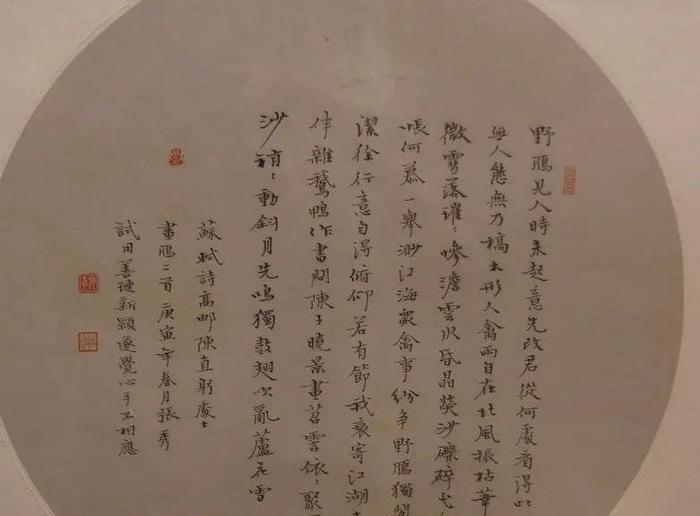 野鴈見人時未起意先改君從何處看得此
無人態無乃槁木形人禽兩自在北風振枯葦
微雪落璀〻慘澹雲水昏晶熒沙礫碎弋
悵何慕一舉渺江海衆禽事紛爭野鴈獨閒
潔徐行意自得俯仰若有節我衰寄江湖
伴雜鵝鴨作書問陳子曉景畫苕霅依〻聚
沙稍〻動斜月先鳴獨鼓翅吹亂蘆花雪
蘇軾詩高郵陳直躬處士
畫鴈二首庚寅年春月張秀
試用善璉新穎遂覺心手不相應